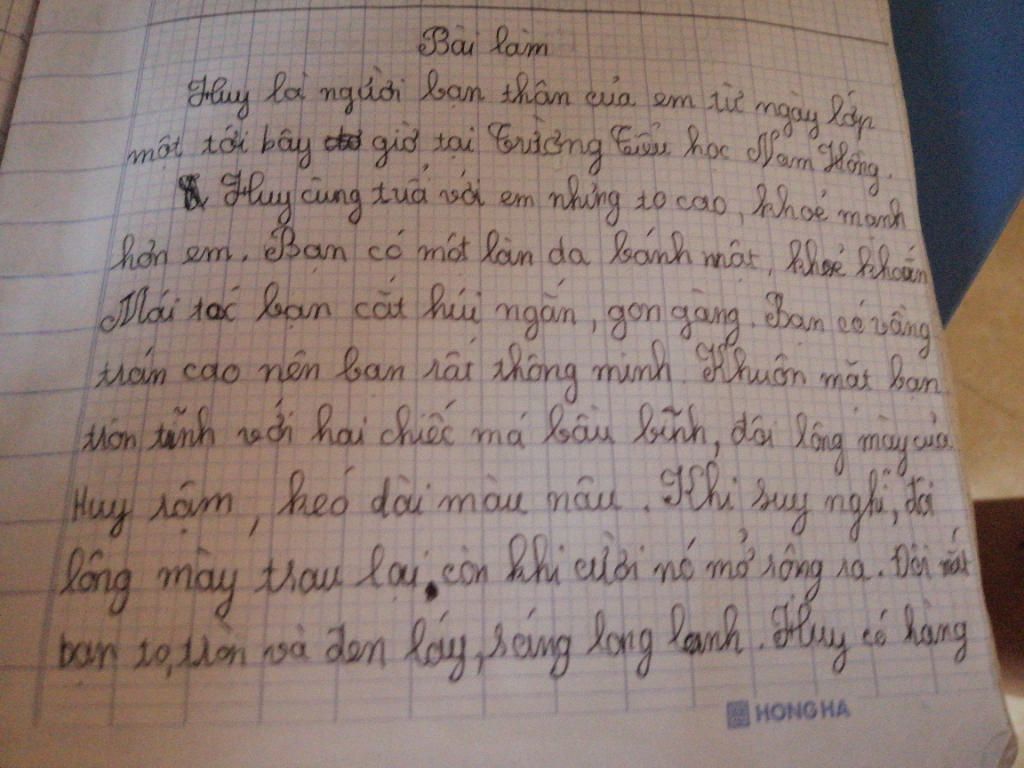 Bài làm
Huy là người bạn thân của em từ ngày lớp
một tới bây giờ tại Trường Tiểu học Nam Hồng.
Huy cùng tuổi với em nhưng to cao, khoẻ mạnh
hơn em. Bạn có một làn da bánh mật, khoẻ khoắn
Mái tóc bạn cắt húi ngắn, gọn gàng. Bạn có vầng
trán cao nên bạn rất thông minh. Khuôn mặt bạn
tròn trĩnh với hai chiếc má bầu bĩnh, đôi lông mày của
Huy rậm, kéo dài màu nâu. Khi suy nghĩ, đôi
lông mày trau lại, còn khi cười nó mở rộng ra. Đôi mắt
bạn to, tròn và đen láy, sáng long lanh. Huy có hàng
HONG HA